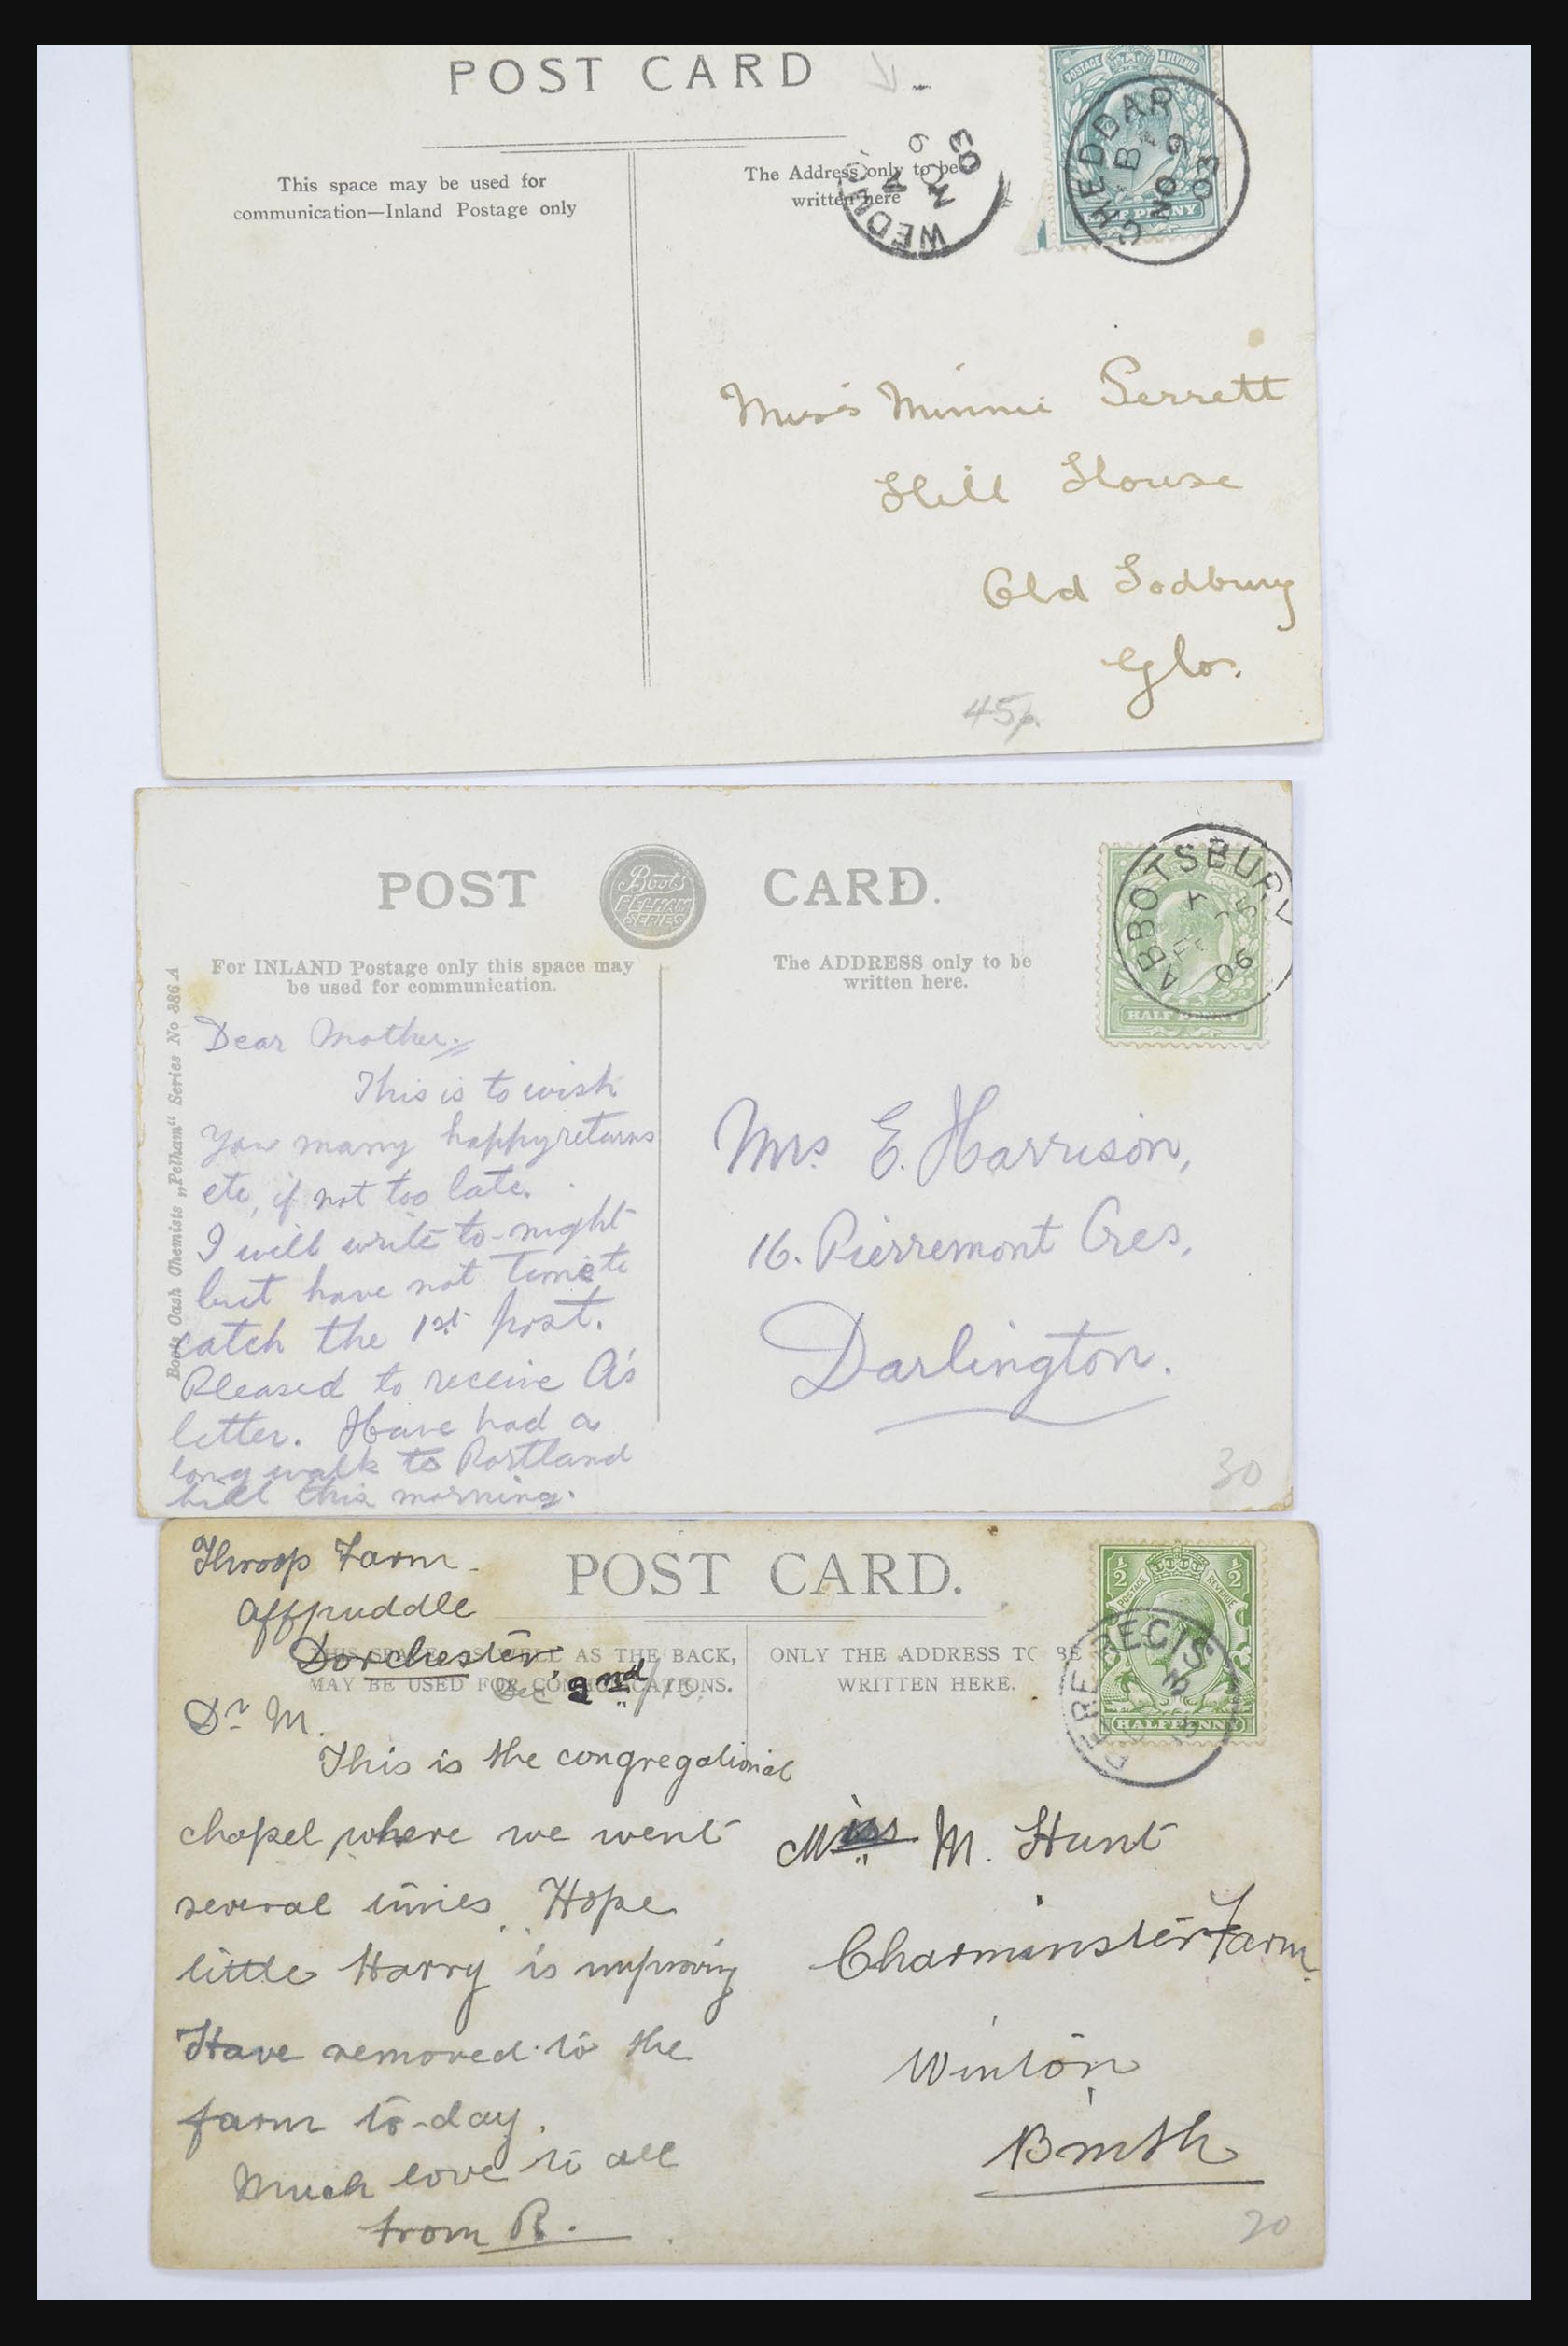 POST CARD
This space may be used for
communication—Inland Postage only
The Address only to be
written here
POSTAGE & REVENUE
HALF PENNY
CHEDDAR
B
NO 9
03
WEDMORE
NO 9
03
Miss Minnie Perrett
Hill House
Old Sodbury
Glos.
45p.
POST CARD.
Boots
PELHAM
SERIES
For INLAND Postage only this space may
be used for communication.
The ADDRESS only to be
written here.
ABBOTSBURY
06
HALF PENNY
Boots Cash Chemists „Pelham“ Series No 886 A
Dear Mother.
This is to wish
You many happy returns
etc, if not too late.
I will write to-night
but have not time to
catch the 1st post.
Pleased to receive A's
letter. Have had a
long walk to Portland
hill this morning.
Mrs. E. Harrison,
16. Pierremont Cres,
Darlington.
30
POST CARD.
THIS SPACE, AS WELL AS THE BACK,
MAY BE USED FOR COMMUNICATIONS.
ONLY THE ADDRESS TO BE
WRITTEN HERE.
½ ½
POSTAGE REVENUE
HALFPENNY
BERE REGIS
Throop Farm.
Affpuddle
Dorchester
Dec 2nd/13.
Dr M.
This is the congregational
chapel, where we went
several times. Hope
little Harry is improving
Have removed to the
farm to-day.
Much love to all
from R.
Miss M. Hunt
Charminster Farm.
Winton
Bmth
20